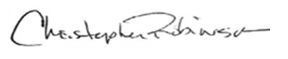 Christopher Robinson